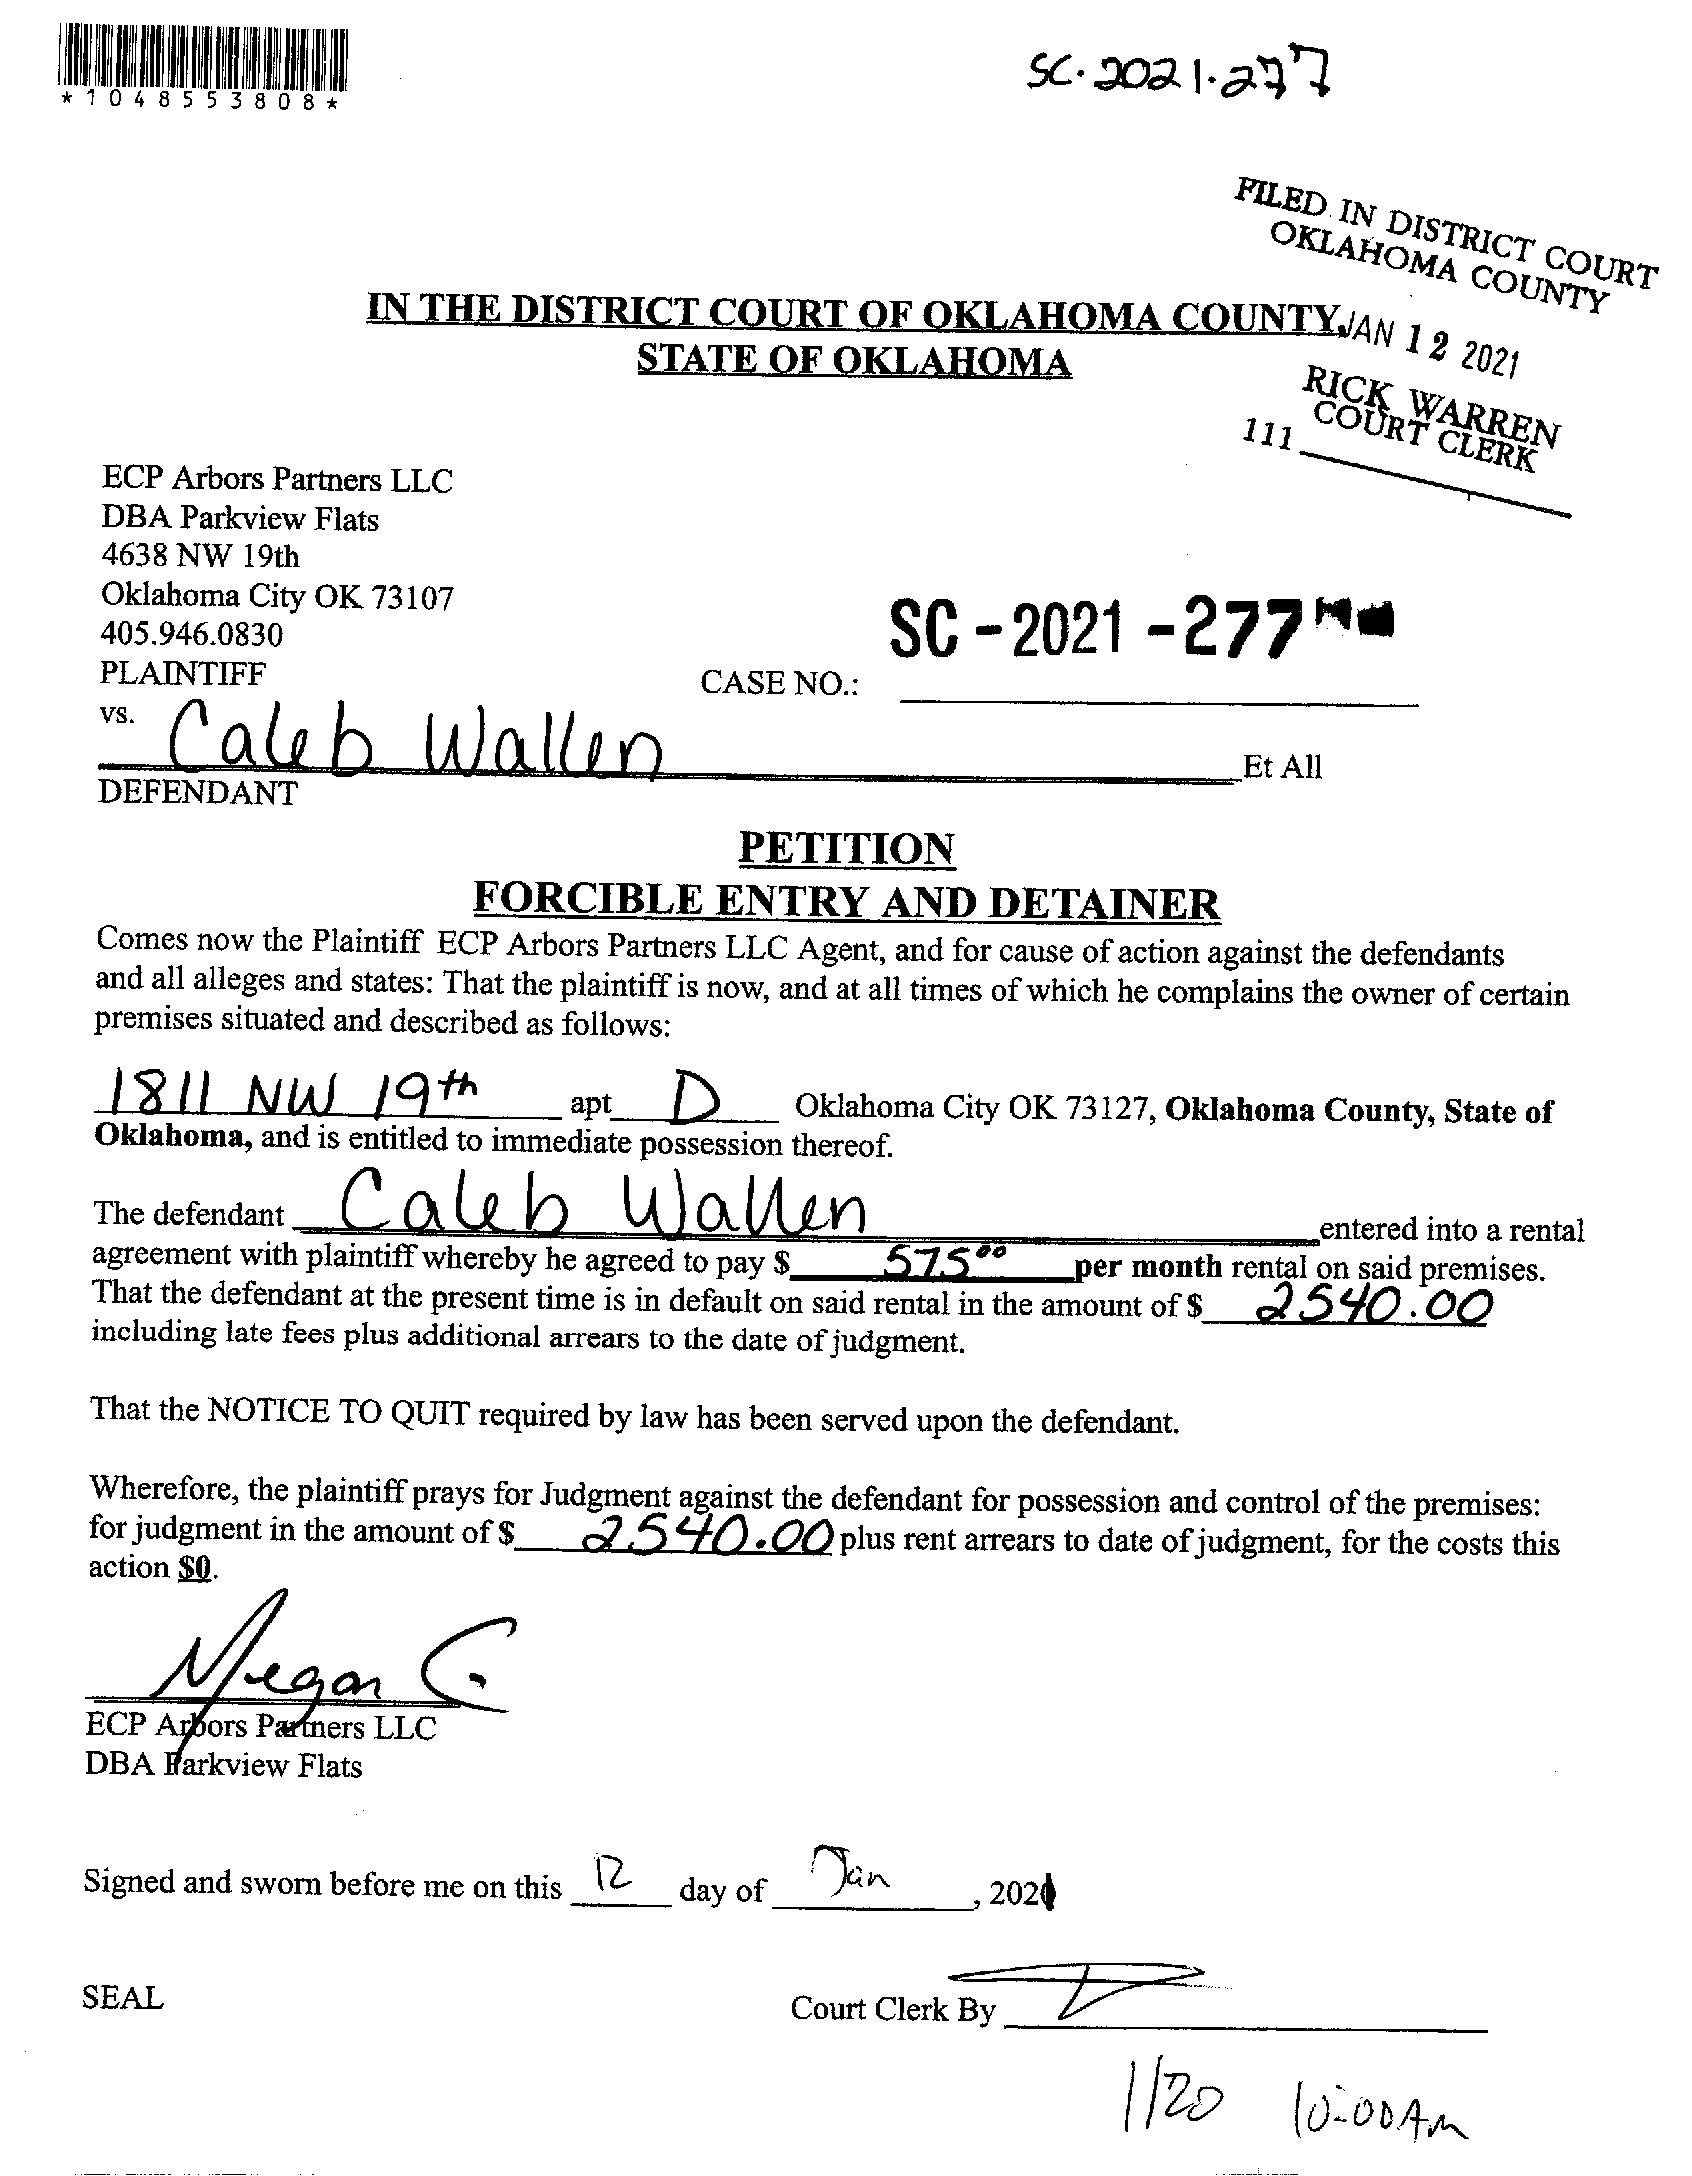 *1048553808*
SC.2021.277
FILED IN DISTRICT COURT
OKLAHOMA COUNTY
JAN 12 2021
RICK WARREN
COURT CLERK
111
IN THE DISTRICT COURT OF OKLAHOMA COUNTY
STATE OF OKLAHOMA
ECP Arbors Partners LLC
DBA Parkview Flats
4638 NW 19th
Oklahoma City OK 73107
405.946.0830
PLAINTIFF
SC - 2021 - 277
CASE NO.:
vs. Caleb Wallen Et All
DEFENDANT
PETITION
FORCIBLE ENTRY AND DETAINER
Comes now the Plaintiff ECP Arbors Partners LLC Agent, and for cause of action against the defendants
and all alleges and states: That the plaintiff is now, and at all times of which he complains the owner of certain
premises situated and described as follows:
1811 NW 19th apt D Oklahoma City OK 73127, Oklahoma County, State of
Oklahoma, and is entitled to immediate possession thereof.
The defendant Caleb Wallen entered into a rental
agreement with plaintiff whereby he agreed to pay $ 575⁰⁰ per month rental on said premises.
That the defendant at the present time is in default on said rental in the amount of $ 2540.00
including late fees plus additional arrears to the date of judgment.
That the NOTICE TO QUIT required by law has been served upon the defendant.
Wherefore, the plaintiff prays for Judgment against the defendant for possession and control of the premises:
for judgment in the amount of $ 2540.00 plus rent arrears to date of judgment, for the costs this
action $0.
Megan C.
ECP Arbors Partners LLC
DBA Parkview Flats
Signed and sworn before me on this 12 day of Jan, 2021
SEAL
Court Clerk By
1/20 10:00AM